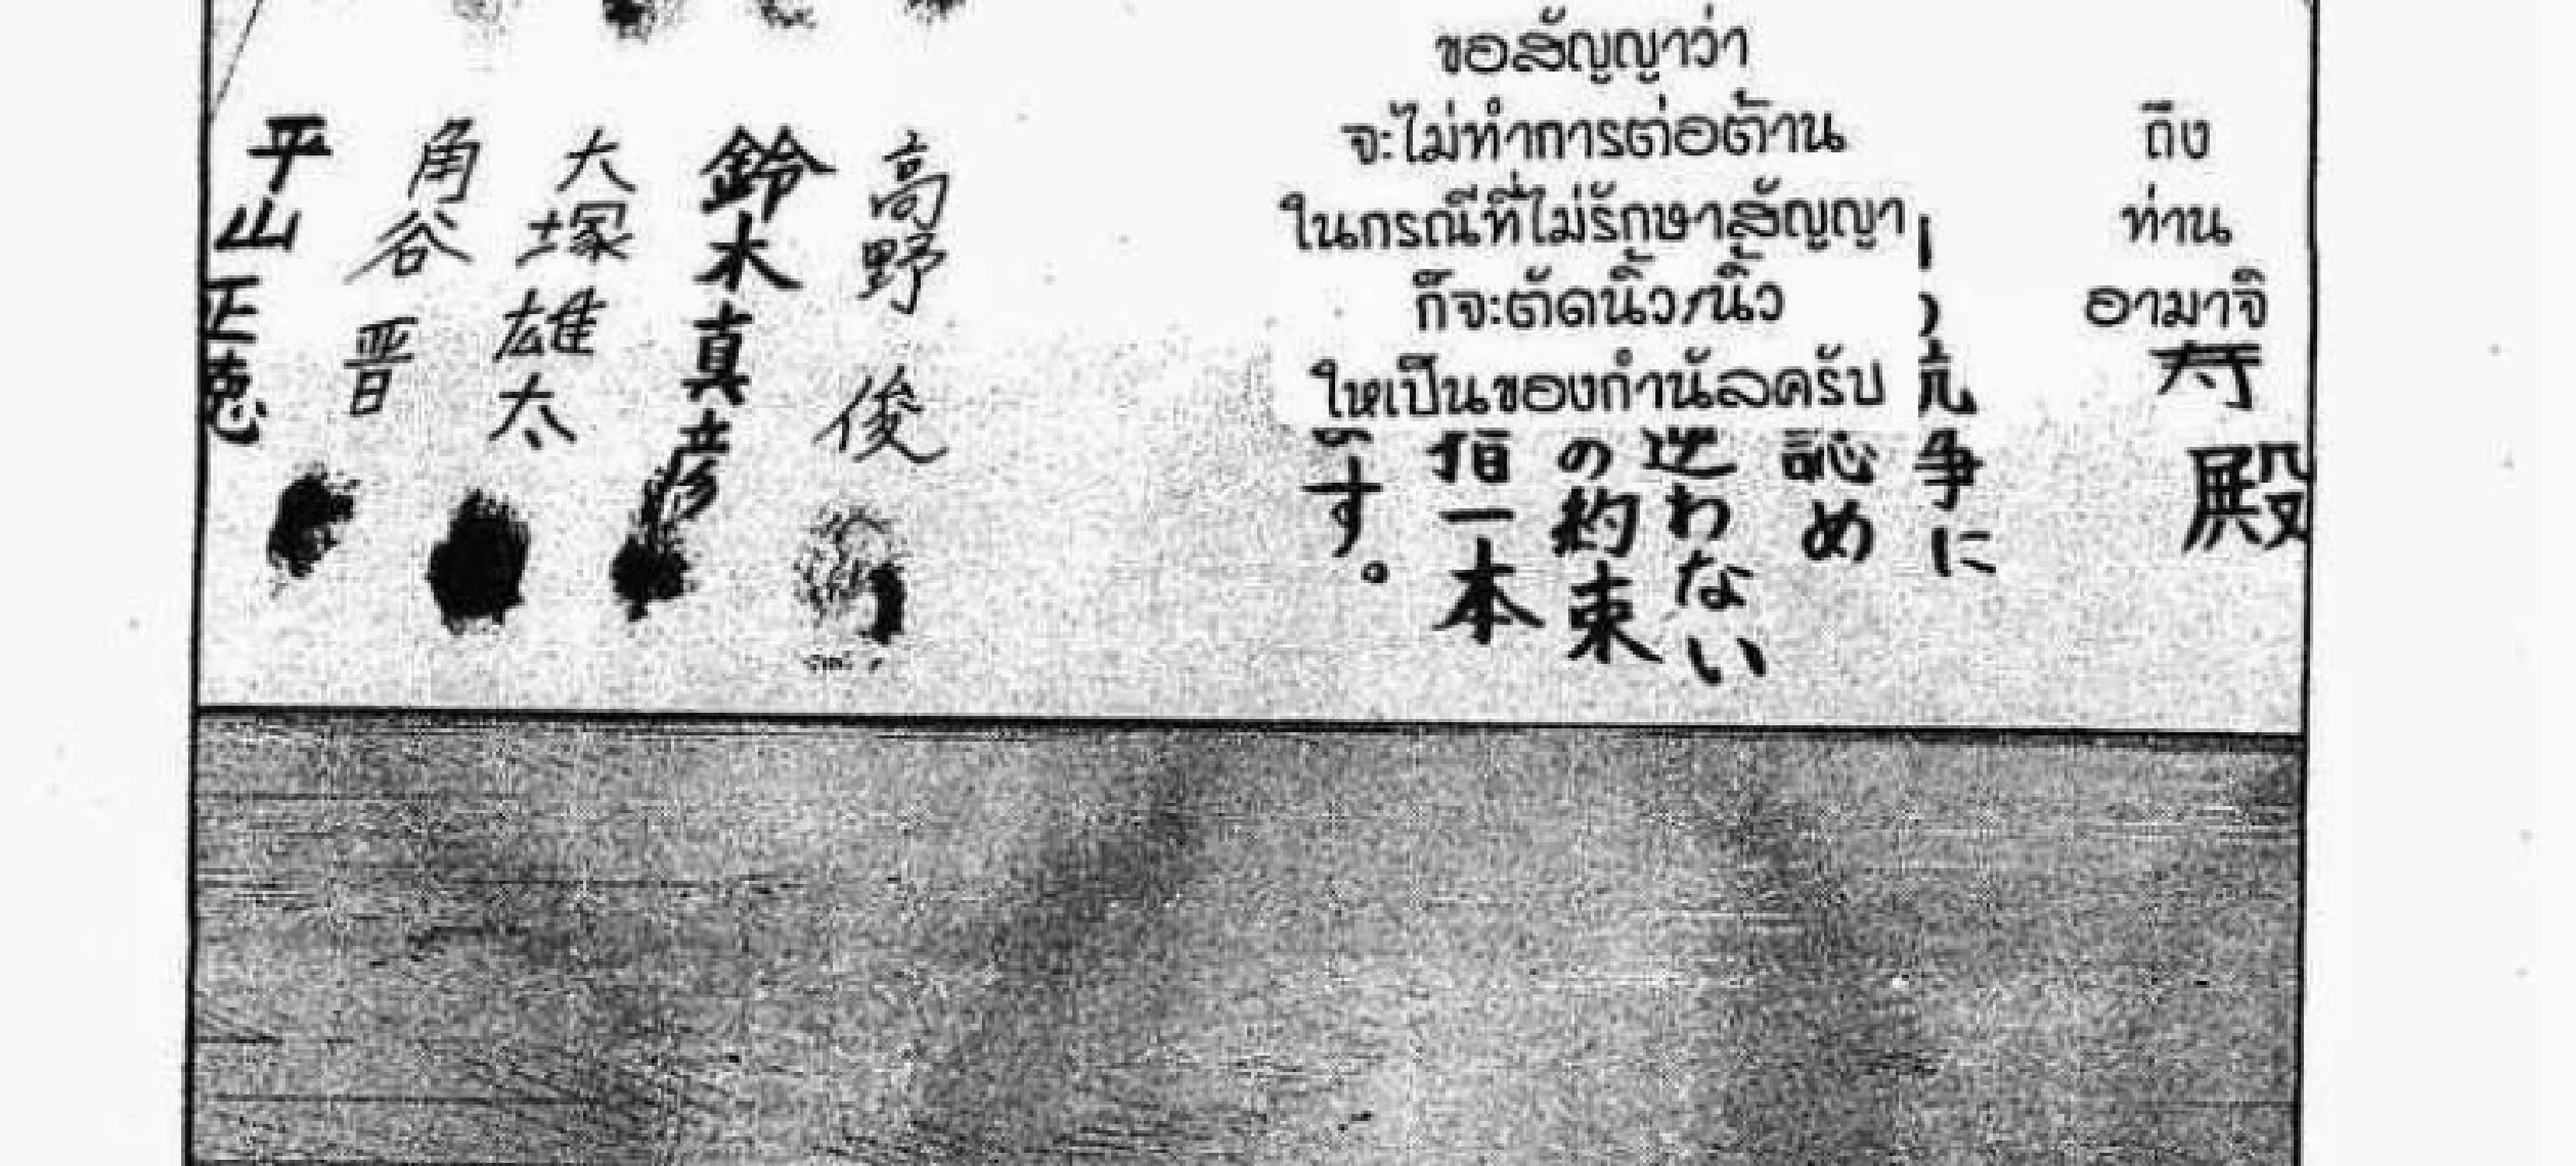 ถึง
ท่าน
อามาจิ
寿
殿
ขอสัญญาว่า
จะไม่ทำการต่อต้าน
ในกรณีที่ไม่รักษาสัญญา
ก็จะตัดนิ้ว/นิ้ว
ให้เป็นของกำนัลครับ
争に
認め
逆わない
の約束
指一本
す。
高野俊
鈴木真彦
大塚雄太
角谷晋
平山正恵